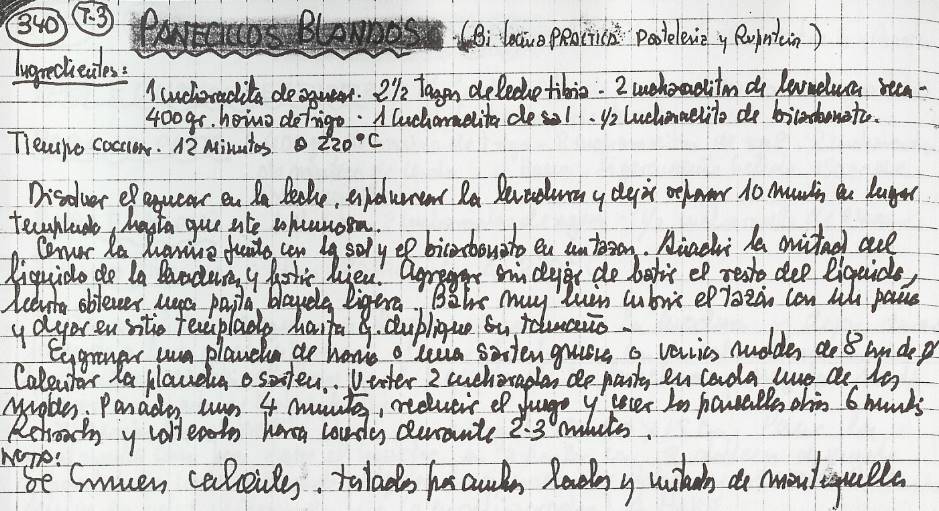 340 T-3 PANECILLOS BLANDOS (Bi Cocina PRACTICA Pasteleria y Reposteria)
Ingredientes:
1 cucharadita de azucar - 2½ tazas de leche tibia - 2 cucharaditas de levadura seca -
400 gr. harina de trigo - 1 cucharadita de sal - ½ cucharadita de bicarbonato.
Tiempo coccion. 12 Minutos a 220°C
Disolver el azucar en la leche, espolvorear la levadura y dejar reposar 10 minutos en lugar
templado, hasta que este espumosa.
Cernir la harina junto con la sal y el bicarbonato en un tazon. Añadir la mitad del
liquido de la levadura y batir bien. Agregar sin dejar de batir el resto del liquido,
hasta obtener una pasta blanda ligera. Batir muy bien cubrir el tazón con un paño
y dejar en sitio templado hasta q. duplique su tamaño -
Engrasar una plancha de horno o una sarten gruesa o varios moldes de 8 cm de Ø
Calentar la plancha o sarten. Verter 2 cucharadas de pasta en cada uno de los
moldes. Pasados unos 4 minutos, reducir el fuego y cocer los panecillos otros 6 minutos
Retirarlos y voltearlos para cocerlos durante 2-3 minutos.
NOTA:
Se sirven calientes, tostados por ambos lados y untados de mantequilla